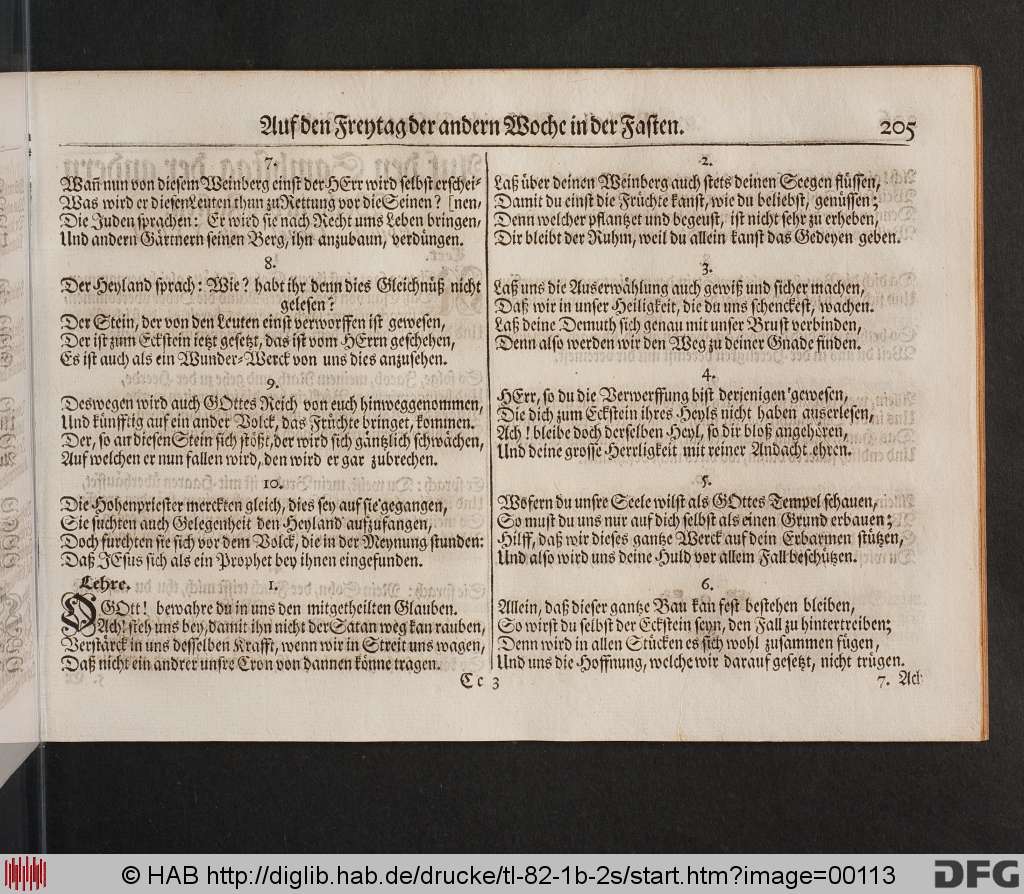 Auf den Freytag der andern Woche in der Fasten.
205
7.
Wañ nun von diesem Weinberg einst der HErr wird selbst erschei-
Was wird er diesen Leuten thun zu Rettung vor die Seinen? [nen,
Die Juden sprachen: Er wird sie nach Recht ums Leben bringen,
Und andern Gärtnern seinen Berg, ihn anzubaun, verdüngen.
8.
Der Heyland sprach: Wie? habt ihr denn dies Gleichnüß nicht
gelesen?
Der Stein, der von den Leuten einst verworffen ist gewesen,
Der ist zum Eckstein ietzt gesetzt, das ist vom HErrn geschehen,
Es ist auch als ein Wunder-Werck von uns dies anzusehen.
9.
Deswegen wird auch GOttes Reich von euch hinweggenommen,
Und künfftig auf ein ander Volck, das Früchte bringet, kommen.
Der, so an diesen Stein sich stößt, der wird sich gäntzlich schwächen,
Auf welchen er nun fallen wird, den wird er gar zubrechen.
10.
Die Hohenpriester merckten gleich, dies sey auf sie gegangen,
Sie suchten auch Gelegenheit den Heyland aufzufangen,
Doch furchten sie sich vor dem Volck, die in der Meynung stunden:
Daß JEsus sich als ein Prophet bey ihnen eingefunden.
Lehre. 1.
O GOtt! bewahre du in uns den mitgetheilten Glauben.
Ach! steh uns bey, damit ihn nicht der Satan weg kan rauben,
Verstärck in uns desselben Krafft, wenn wir in Streit uns wagen,
Daß nicht ein andrer unsre Cron von dannen könne tragen.
2.
Laß über deinen Weinberg auch stets deinen Seegen flüssen,
Damit du einst die Früchte kanst, wie du beliebst, genüssen;
Denn welcher pflantzet und begeust, ist nicht sehr zu erheben,
Dir bleibt der Ruhm, weil du allein kanst das Gedeyen geben.
3.
Laß uns die Auserwählung auch gewiß und sicher machen,
Daß wir in unser Heiligkeit, die du uns schenckest, wachen.
Laß deine Demuth sich genau mit unser Brust verbinden,
Denn also werden wir den Weg zu deiner Gnade finden.
4.
HErr, so du die Verwerffung bist derjenigen gewesen,
Die dich zum Eckstein ihres Heyls nicht haben auserlesen,
Ach! bleibe doch derselben Heyl, so dir bloß angehören,
Und deine grosse Herrligkeit mit reiner Andacht ehren.
5.
Wofern du unsre Seele wilst als GOttes Tempel schauen,
So must du uns nur auf dich selbst als einen Grund erbauen;
Hilff, daß wir dieses gantze Werck auf dein Erbarmen stützen,
Und also wird uns deine Huld vor allem Fall beschützen.
6.
Allein, daß dieser gantze Bau kan fest bestehen bleiben,
So wirst du selbst der Eckstein seyn, den Fall zu hintertreiben;
Denn wird in allen Stücken es sich wohl zusammen fügen,
Und uns die Hoffnung, welche wir darauf gesetzt, nicht trügen.
Cc 3
7. Ach
© HAB http://diglib.hab.de/drucke/tl-82-1b-2s/start.htm?image=00113
DFG